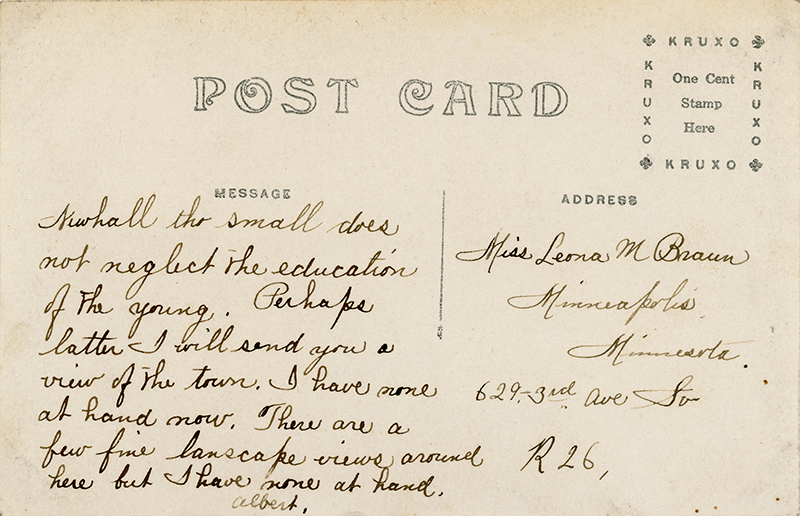 POST CARD
KRUXO
KRUXO
One Cent
Stamp
Here
KRUXO
KRUXO
MESSAGE
Newhall tho small does
not neglect the education
of the young. Perhaps
latter I will send you a
view of the town. I have none
at hand now. There are a
few fine lanscape views around
here but I have none at hand.
albert.
ADDRESS
Miss Leona M Braun
Minneapolis
Minnesota.
629-3rd Ave So
R 26,